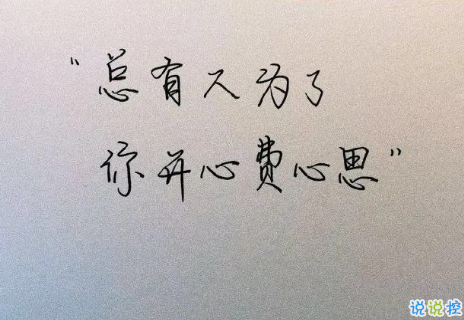 “总有人为了
你开心费心思”
说说控